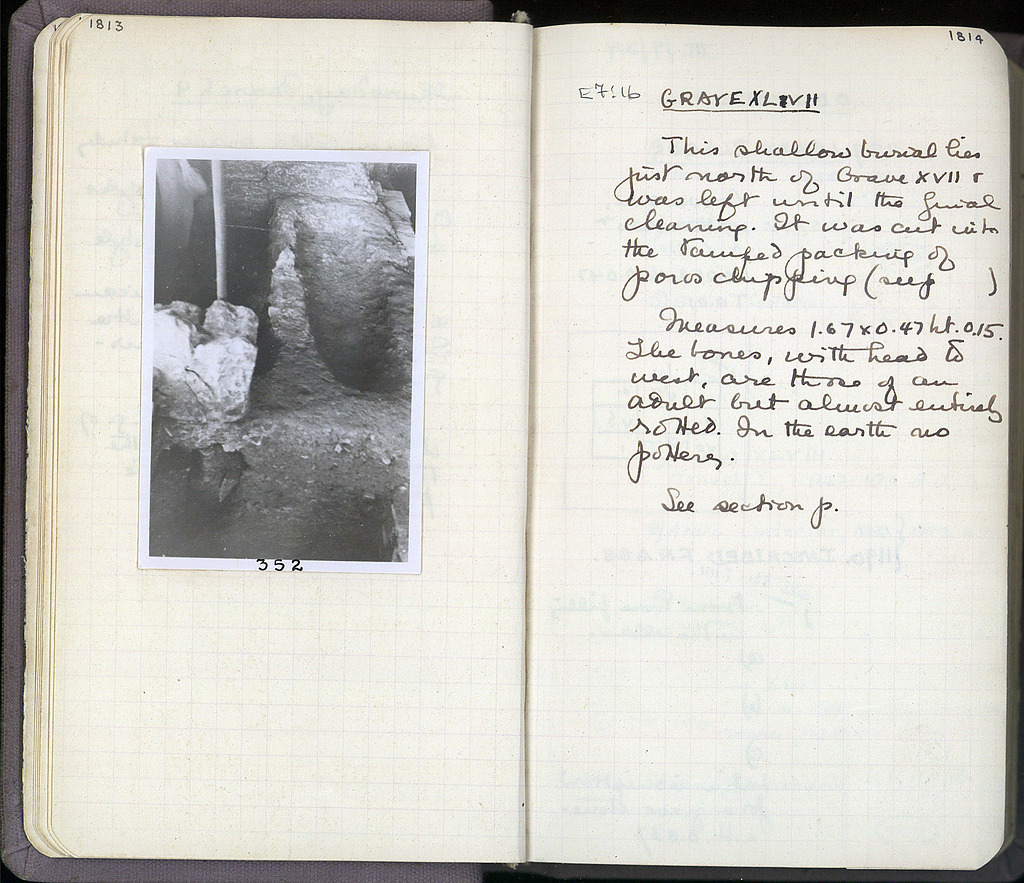 1813
352
1814
E7:16 GRAVE XLIVII
This shallow burial lies
just north of Grave XVII &
was left until the final
cleaning. It was cut into
the tamped packing of
poros chipping (see p )
Measures 1.67 x 0.47 ht. 0.15.
The bones, with head to
west, are those of an
adult but almost entirely
rotted. In the earth no
pottery.
See section p.